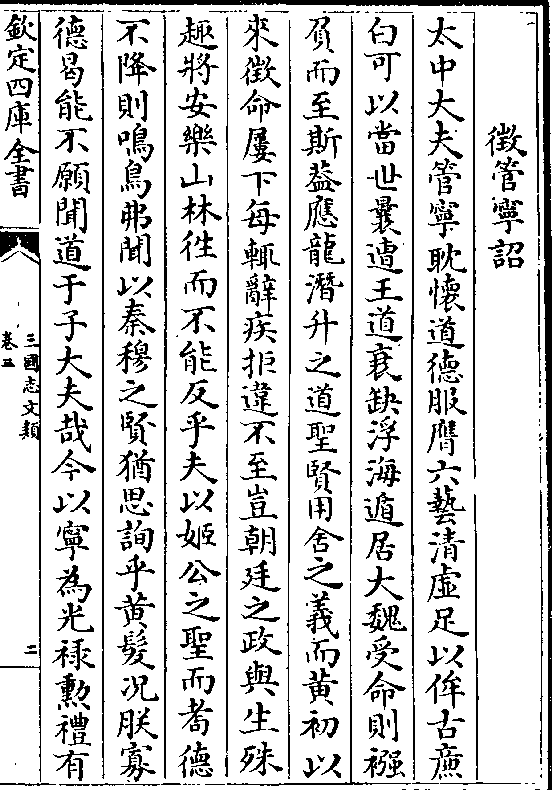 徴管寧詔
太中大夫管寧耽懷道德服膺六藝清虛足以侔古㢘
白可以當世曩遭王道衰缺浮海遁居大魏受命則襁
負而至斯葢應龍潛升之道聖賢用舍之義而黄初以
來徴命屢下每輒辭疾拒違不至豈朝廷之政與生殊
趣將安樂山林徃而不能反乎夫以姬公之聖而耉德
不降則鳴鳥弗聞以秦穆之賢猶思詢乎黄髮况朕寡
德曷能不願聞道于子大夫哉今以寧為光禄勲禮有
欽定四庫全書
三國志文類
卷三
二